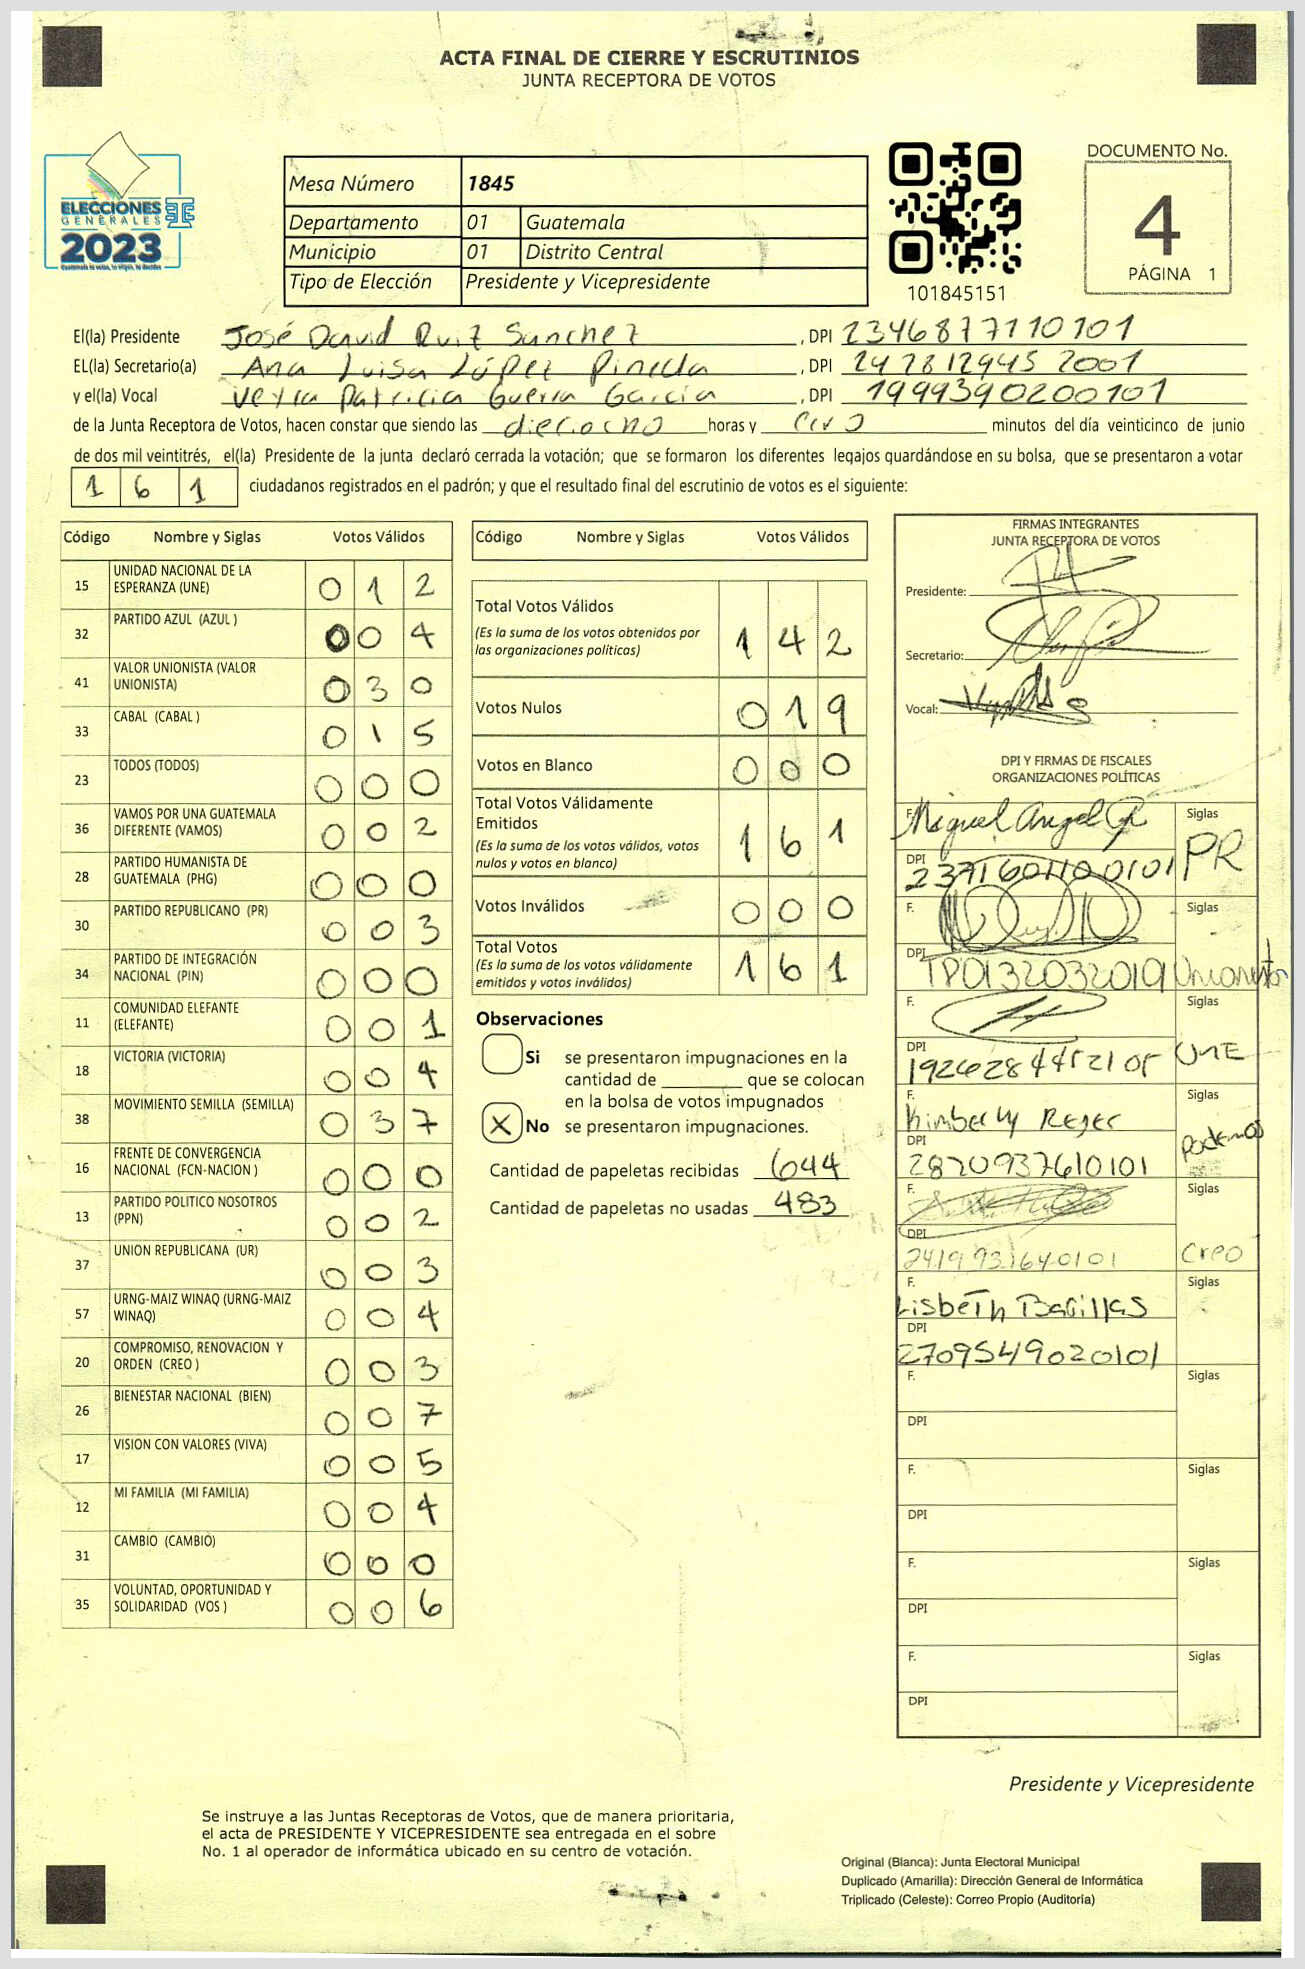 ACTA FINAL DE CIERRE Y ESCRUTINIOS
JUNTA RECEPTORA DE VOTOS
ELECCIONES
GENERALES
2023
Mesa Número 1845
Departamento 01 Guatemala
Municipio 01 Distrito Central
Tipo de Elección Presidente y Vicepresidente
101845151
DOCUMENTO No.
4
PÁGINA 1
El(la) Presidente José David Ruiz Sanchez, DPI 2346877110101
EL(la) Secretario(a) Ana Luisa López Pineda, DPI 247812945 2001
y el(la) Vocal Patricia Guerra García, DPI 1999390200101
de la Junta Receptora de Votos, hacen constar que siendo las dieciocho horas y cero minutos del día veinticinco de junio
de dos mil veintitrés, el(la) Presidente de la junta declaró cerrada la votación; que se formaron los diferentes legajos guardándose en su bolsa, que se presentaron a votar
1 6 1 ciudadanos registrados en el padrón; y que el resultado final del escrutinio de votos es el siguiente:
Código Nombre y Siglas Votos Válidos
15 UNIDAD NACIONAL DE LA ESPERANZA (UNE) 0 1 2
32 PARTIDO AZUL (AZUL ) 0 0 4
41 VALOR UNIONISTA (VALOR UNIONISTA) 0 3 0
33 CABAL (CABAL ) 0 1 5
23 TODOS (TODOS) 0 0 0
36 VAMOS POR UNA GUATEMALA DIFERENTE (VAMOS) 0 0 2
28 PARTIDO HUMANISTA DE GUATEMALA (PHG) 0 0 0
30 PARTIDO REPUBLICANO (PR) 0 0 3
34 PARTIDO DE INTEGRACIÓN NACIONAL (PIN) 0 0 0
11 COMUNIDAD ELEFANTE (ELEFANTE) 0 0 1
18 VICTORIA (VICTORIA) 0 0 4
38 MOVIMIENTO SEMILLA (SEMILLA) 0 3 7
16 FRENTE DE CONVERGENCIA NACIONAL (FCN-NACION ) 0 0 0
13 PARTIDO POLITICO NOSOTROS (PPN) 0 0 2
37 UNION REPUBLICANA (UR) 0 0 3
57 URNG-MAIZ WINAQ (URNG-MAIZ WINAQ) 0 0 4
20 COMPROMISO, RENOVACION Y ORDEN (CREO ) 0 0 3
26 BIENESTAR NACIONAL (BIEN) 0 0 7
17 VISION CON VALORES (VIVA) 0 0 5
12 MI FAMILIA (MI FAMILIA) 0 0 4
31 CAMBIO (CAMBIO) 0 0 0
35 VOLUNTAD, OPORTUNIDAD Y SOLIDARIDAD (VOS ) 0 0 6
Código Nombre y Siglas Votos Válidos
Total Votos Válidos 1 4 2
(Es la suma de los votos obtenidos por
las organizaciones políticas)
Votos Nulos 0 1 9
Votos en Blanco 0 0 0
Total Votos Válidamente
Emitidos 1 6 1
(Es la suma de los votos válidos, votos
nulos y votos en blanco)
Votos Inválidos 0 0 0
Total Votos 1 6 1
(Es la suma de los votos válidamente
emitidos y votos inválidos)
Observaciones
Si se presentaron impugnaciones en la
cantidad de ________ que se colocan
en la bolsa de votos impugnados
X No se presentaron impugnaciones.
Cantidad de papeletas recibidas 644
Cantidad de papeletas no usadas 483
FIRMAS INTEGRANTES
JUNTA RECEPTORA DE VOTOS
Presidente:
Secretario:
Vocal:
DPI Y FIRMAS DE FISCALES
ORGANIZACIONES POLÍTICAS
F. Miguel Angel Siglas
DPI PR
F. Siglas
DPI TP0132032019 Unionista
F. Siglas
DPI UNE
F. Kimberly Reyes Siglas
DPI 2870937610101 Podemos
F. Siglas
DPI 2419931640101 Creo
F. Lisbeth Barillas Siglas
DPI 2709549020101
F. Siglas
DPI
F. Siglas
DPI
F. Siglas
DPI
F. Siglas
DPI
Presidente y Vicepresidente
Se instruye a las Juntas Receptoras de Votos, que de manera prioritaria,
el acta de PRESIDENTE Y VICEPRESIDENTE sea entregada en el sobre
No. 1 al operador de informática ubicado en su centro de votación.
Original (Blanca): Junta Electoral Municipal
Duplicado (Amarilla): Dirección General de Informática
Triplicado (Celeste): Correo Propio (Auditoría)